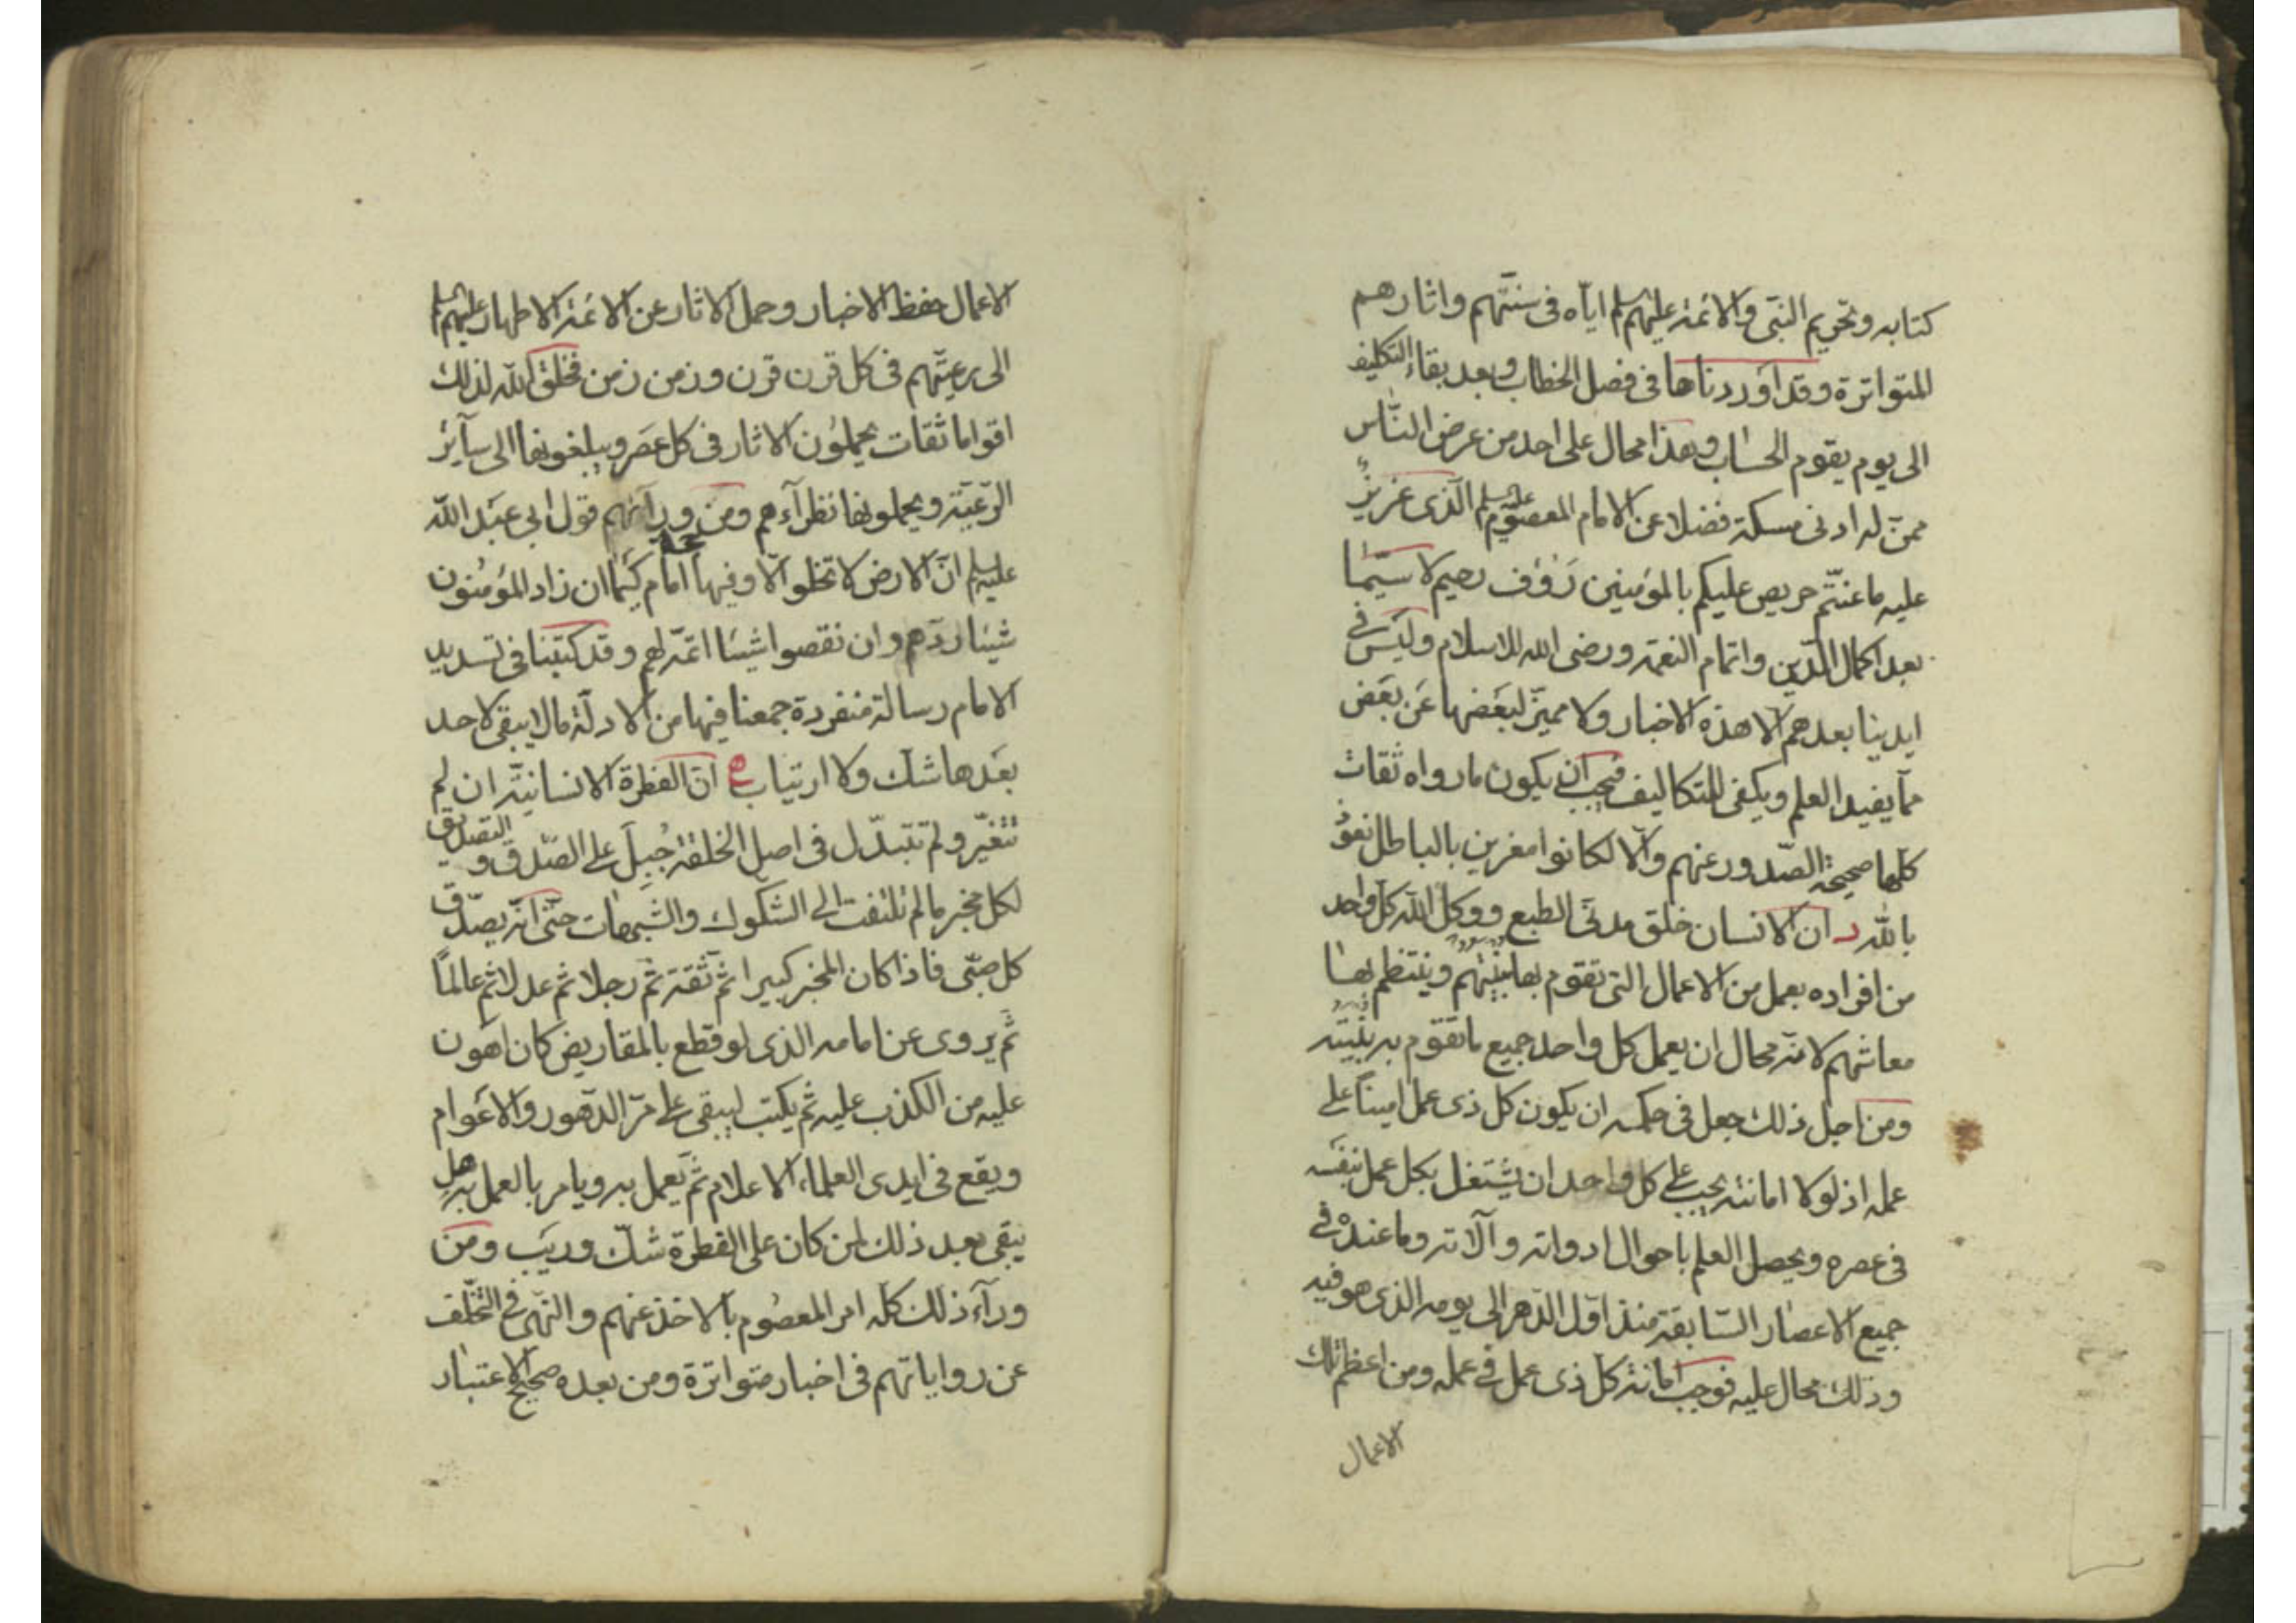 كتابه وتحريم النبی والائمة عليهم السلم اياه فی سنتهم واثارهم
المتواترة وقد اوردناها فی فصل الخطاب وبعد بقاء التكليف
الی يوم يقوم الحساب وهذا محال علی احد من عرض الناس
ممن له ادنی مسكة فضلا عن الامام المعصوم عليه السلم الذی عزيز
عليه ما عنتم حريص عليكم بالمؤمنين رؤف رحيم لا سيما
بعد اكمال الدين واتمام النعمة ورضی الله للاسلام وليس فی
ايدينا بعدهم الا هذه الاخبار ولا مميز لبعضها عن بعض
مما يفيد العلم ويكفی للتكاليف فيجب ان يكون ما رواه ثقات
كلها صحيحة الصدور عنهم والا لكانوا مغرين بالباطل نعوذ
بالله د ان الانسان خلق مدنی الطبع ووكل الله كل واحد
من افراده بعمل من الاعمال التی تقوم بها بنيتهم وينتظم بها
معاشهم لانه محال ان يعمل كل واحد جميع ما تقوم به بنيته
ومن اجل ذلك جعل فی حكمه ان يكون كل ذی عمل امينا علی
عمله اذ لولا امانته يجب علی كل واحد ان يشتغل بكل عمل بنفسه
فی عصره ويحصل العلم باحوال ادواته وآلاته وما عنده فی
جميع الاعصار السابقة منذ اول الدهر الی يومه الذی هو فيه
وذلك محال عليه فوجب امانة كل ذی عمل فی عمله ومن اعظم تلك
الاعمال
الاعمال حفظ الاخبار وحمل الاثار عن الائمة الاطهار عليهم السلم
الی رعيتهم فی كل قرن قرن وزمن زمن فخلق الله لذلك
اقواما ثقات يحملون الاثار فی كل عصر ويبلغونها الی سآئر
الرعية ويحملونها نظرآءهم ومن ورآئهم قول ابی عبد الله
عليه السلم ان الارض لا تخلو الا وفيها امام كيما ان زاد المؤمنون
شيئا ردهم وان نقصوا شيئا اتمه لهم وقد كتبنا فی تسديد
الامام رسالة منفردة جمعنا فيها من الادلة ما لا يبقی لاحد
بعدها شك ولا ارتياب ه ان الفطرة الانسانية ان لم
تتغير ولم تتبدل فی اصل الخلقة جُبِلَ علی الصدق والتصديق
لكل مخبر ما لم تلتفت الی الشكوك والشبهات حتی انه يصدق
كل صبی فاذا كان المخبر كبيرا ثم ثقة ثم رجلا ثم عدلا ثم عالمًا
ثم يروی عن امامه الذی لو قطع بالمقاريض كان اهون
عليه من الكذب عليه ثم يكتب ليبقی علی مر الدهور والاعوام
ويقع فی ايدی العلماء الاعلام ثم يعمل به ويامر بالعمل به هل
يبقی بعد ذلك لمن كان علی الفطرة شك وريب ومن
ورآء ذلك كله امر المعصوم بالاخذ عنهم والنهی عن التخلف
عن رواياتهم فی اخبار متواترة ومن بعده صحيح الاعتبار